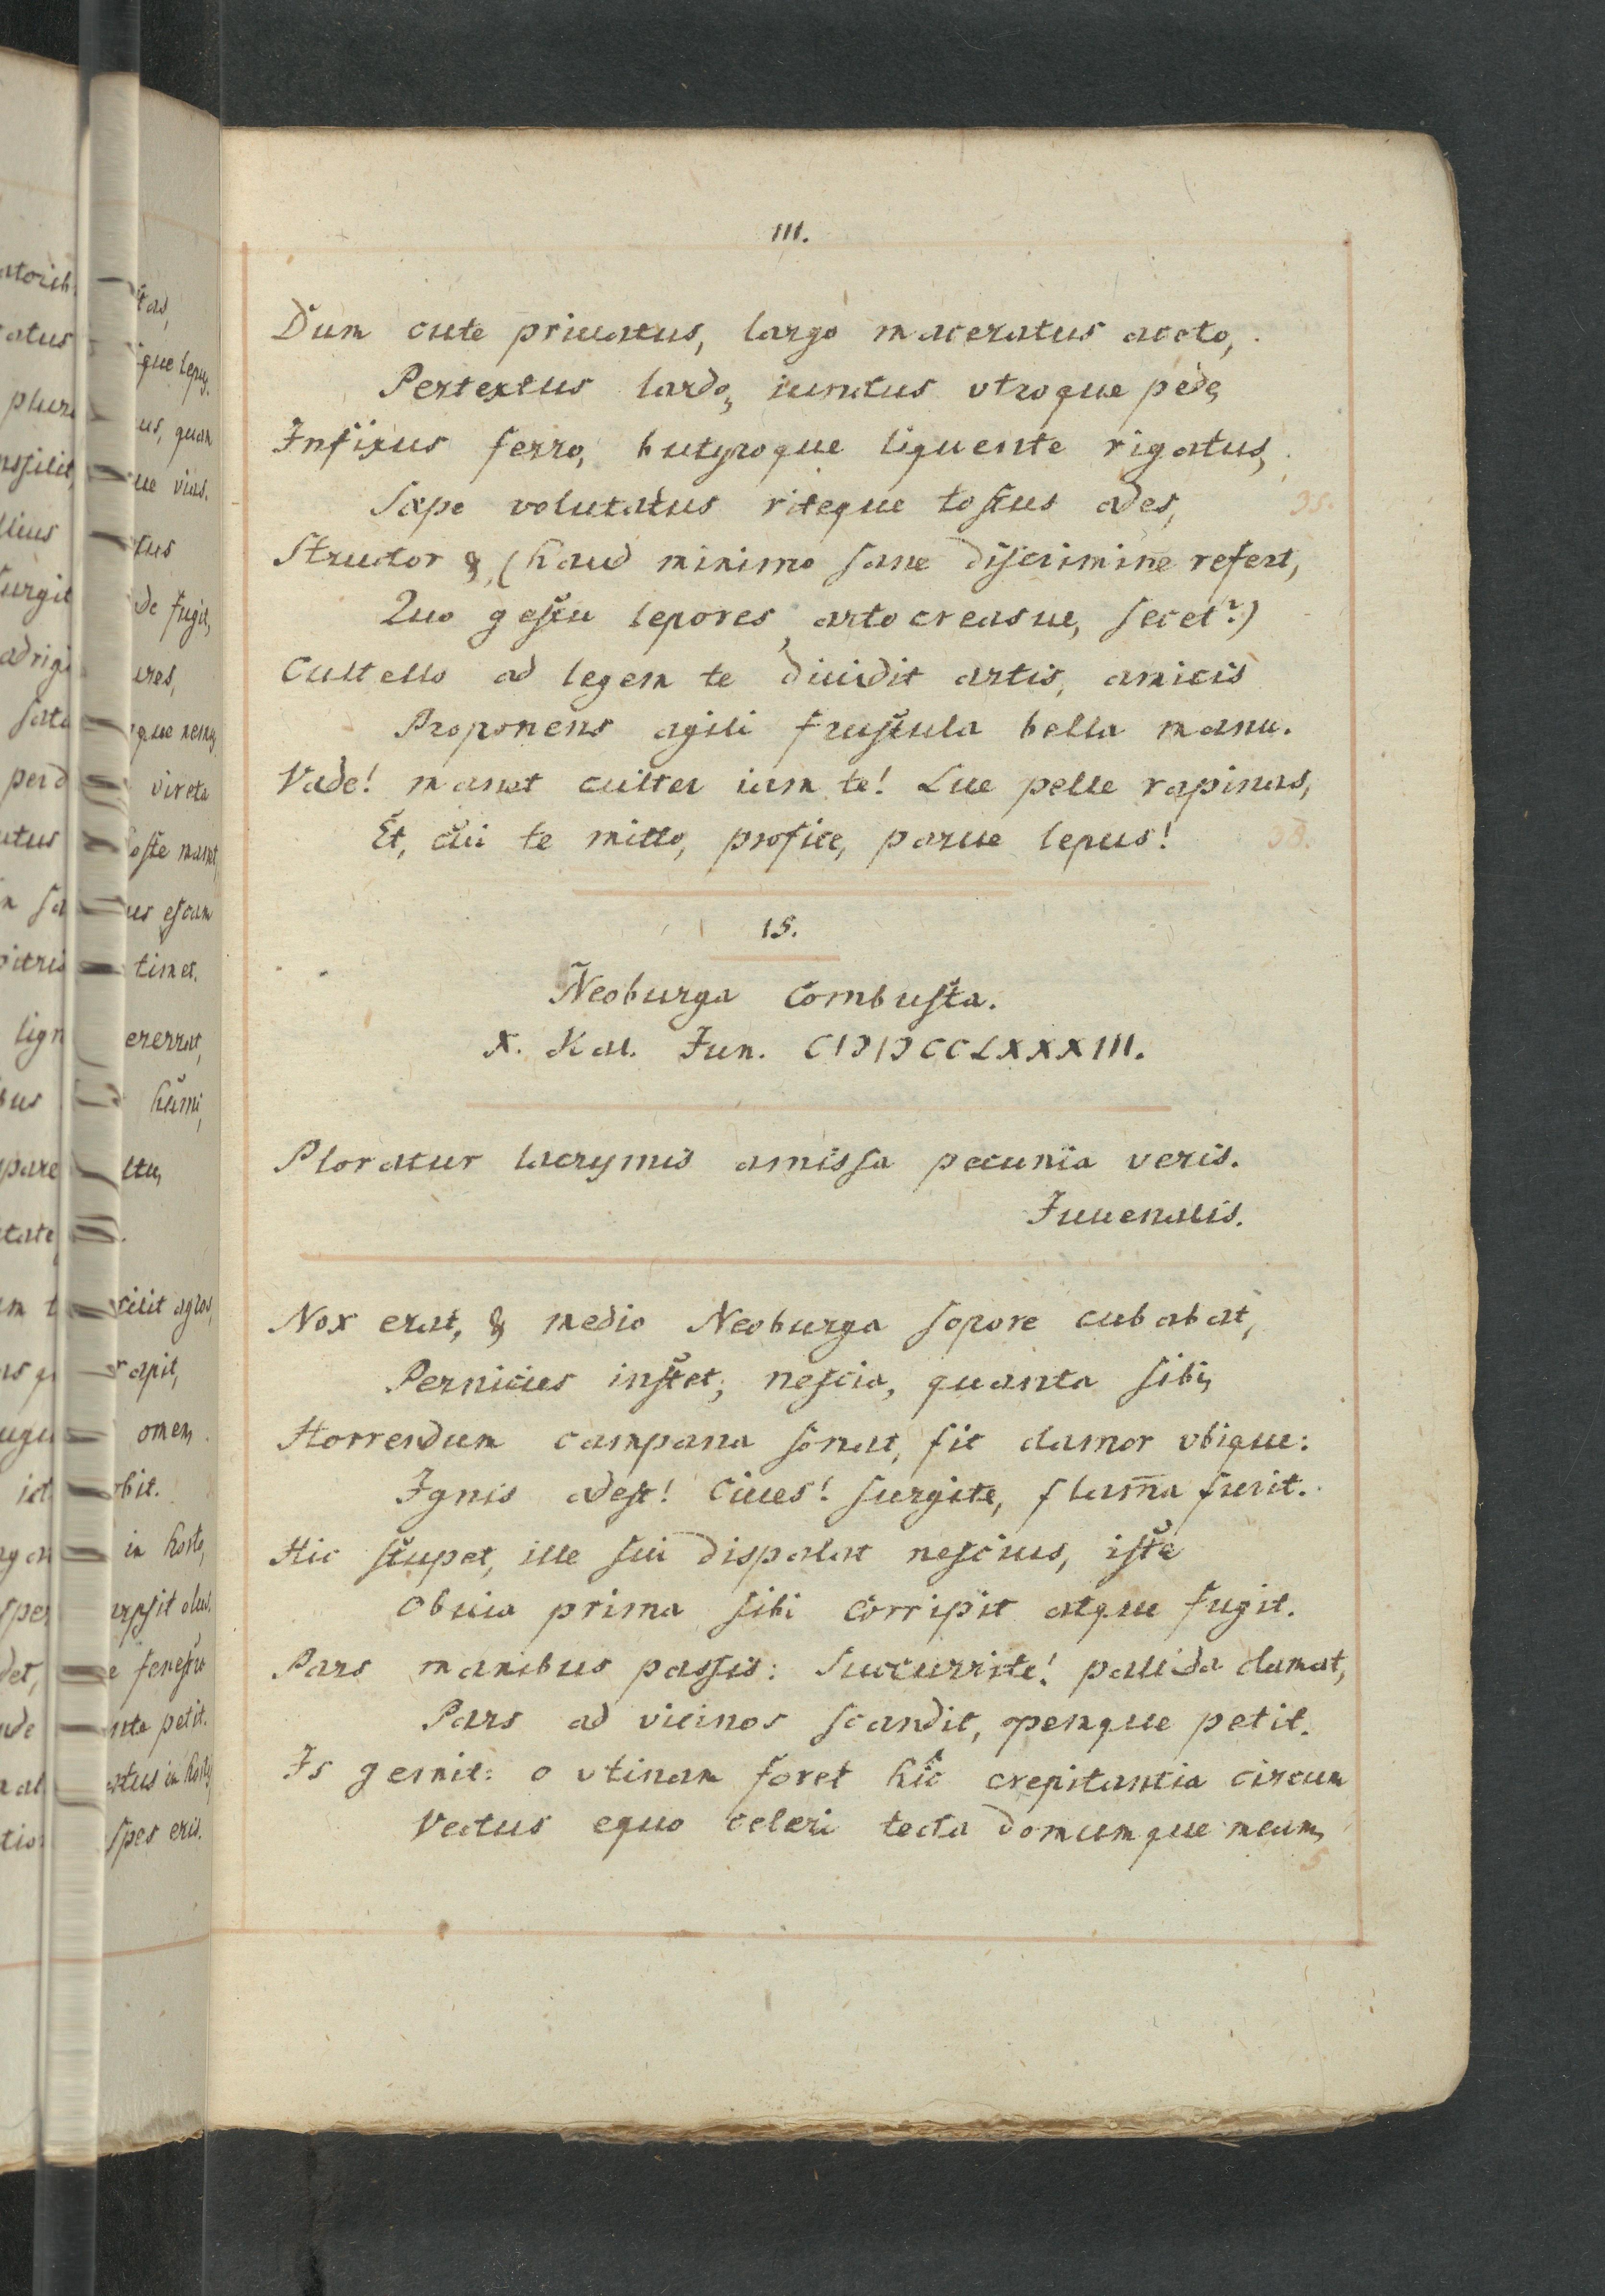 III.
Dum cute priuatus, largo maceratus aceto,
Pertextus lardo, iunctus vtroque pede,
Infixus ferro, butyroque liquente rigatus,
Sæpe volutatus riteque tostus ades,
35.
Structor &, (haud minimo sane discrimine refert,
Quo gestu lepores, artocreasue, secet?)
Cultello ad legem te diuidit artis, amicis
Proponens agili frustula bella manu.
Vade! manet culter iam te! Lue pelle rapinas,
Et, cui te mitto, profice, parue lepus!
38.
15.
Neoburga combusta.
X. Kal. Jun. CIↃIↃCCLXXXIII.
Ploratur lacrymis amissa pecunia veris.
Juuenalis.
Nox erat, & medio Neoburga sopore cubabat,
Pernicies instet, nescia, quanta sibi,
Horrendum campana sonat, fit clamor vbique:
Ignis adest! Ciues! surgite, flam̅a furit.
Hic stupet, ille sui dispalat nescius, iste
Obuia prima sibi corripit atque fugit.
Pars manibus passis: Succurrite! pallida clamat,
Pars ad vicinos scandit, opemque petit.
Is gemit: o vtinam foret hic crepitantia circum
Vectus equo celeri tecta domumque meam,
5